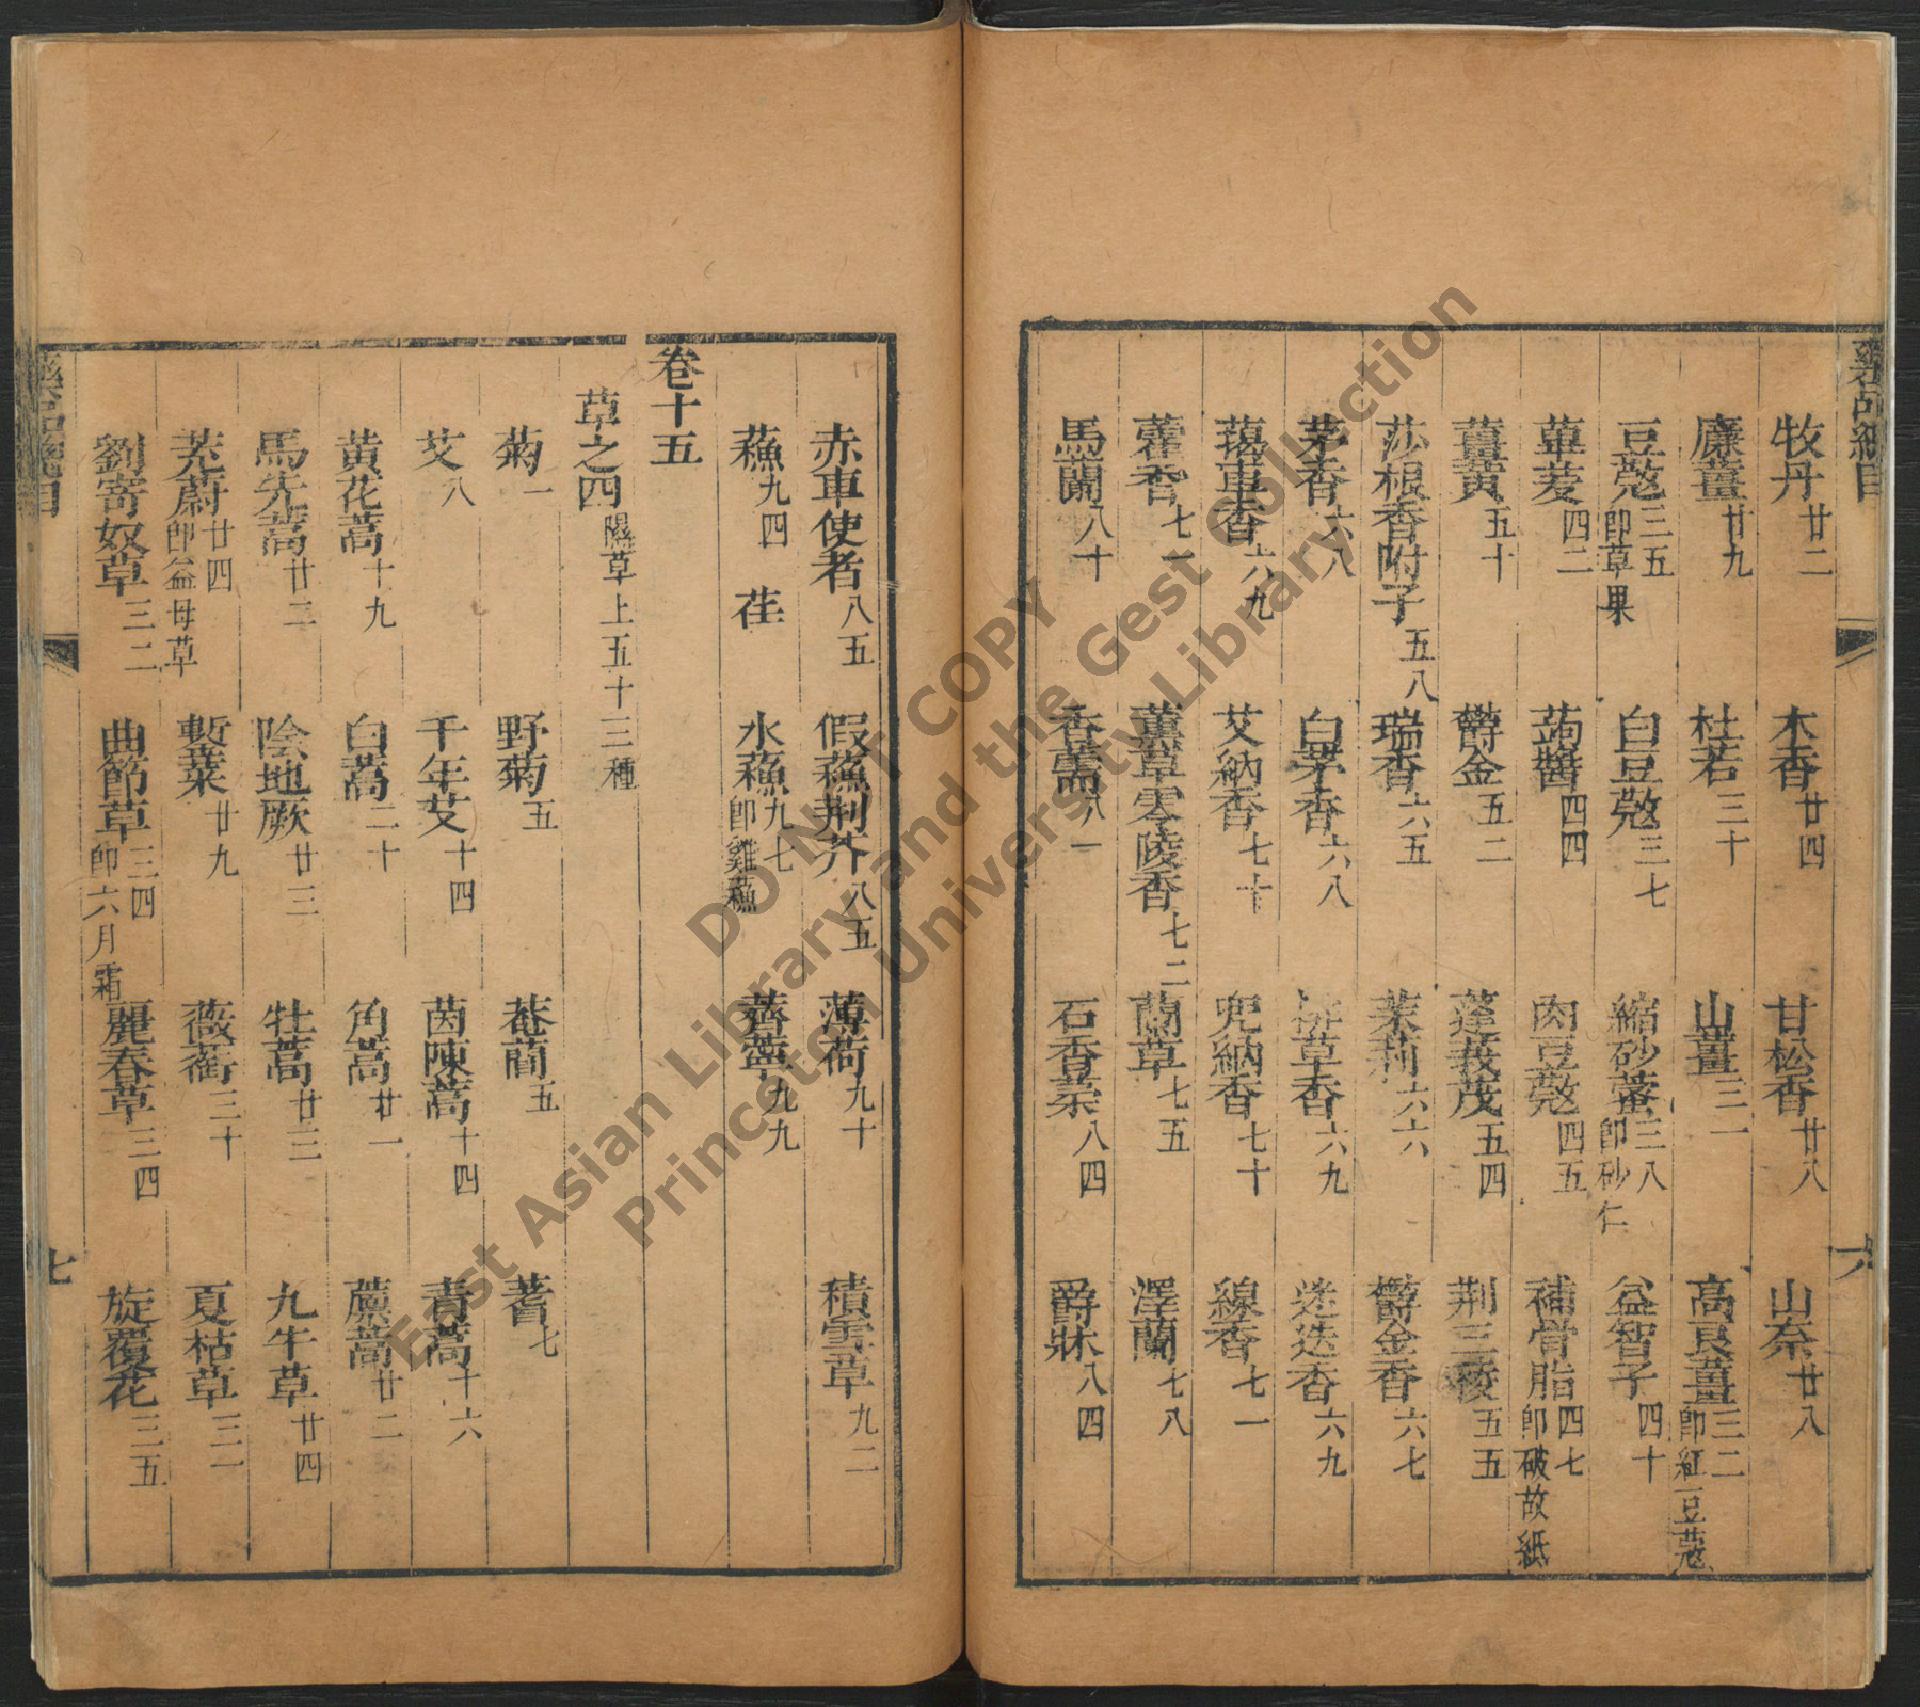 藥品總目
六
牧丹廿二 木香廿四 甘松香廿八 山柰廿八
廉薑廿九 杜若三十 山薑三一 高良薑三二即紅豆蔻
豆蔻三五即草果 白豆蔻三七 縮砂蔤三八即砂仁 益智子四十
蓽茇四二 蒟醬四四 肉豆蔻四五 補骨脂四七即破故紙
薑黃五十 欝金五二 蓬莪茂五四 荆三稜五五
莎根香附子五八 瑞香六五 茉莉六六 欝金香六七
茅香六八 白茅香六八 排草香六九 迷迭香六九
藒車香六九 艾納香七十 兜納香七十 線香七一
藿香七一 薰草零陵香七二 蘭草七五 澤蘭七八
馬蘭八十 香薷八一 石香葇八四 爵牀八四
赤車使者八五 假蘇荆芥八五 薄荷九十 積雪草九二
蘇九四 荏 水蘇九七即雞蘇 薺薴九九
卷十五
草之四隰草上五十三種
菊一 野菊五 菴䕡五 蓍七
艾八 千年艾十四 茵陳蒿十四 青蒿十六
黃花蒿十九 白蒿二十 角蒿廿一 藨蒿廿二
馬先蒿廿二 陰地厥廿三 牡蒿廿三 九牛草廿四
茺蔚廿四即益母草 鏨菜廿九 薇銜三十 夏枯草三一
劉寄奴草三二 曲節草三四即六月霜 麗春草三四 旋覆花三五
藥品總目
七
DO NOT COPY
East Asian Library and the Gest Collection
Princeton University Library